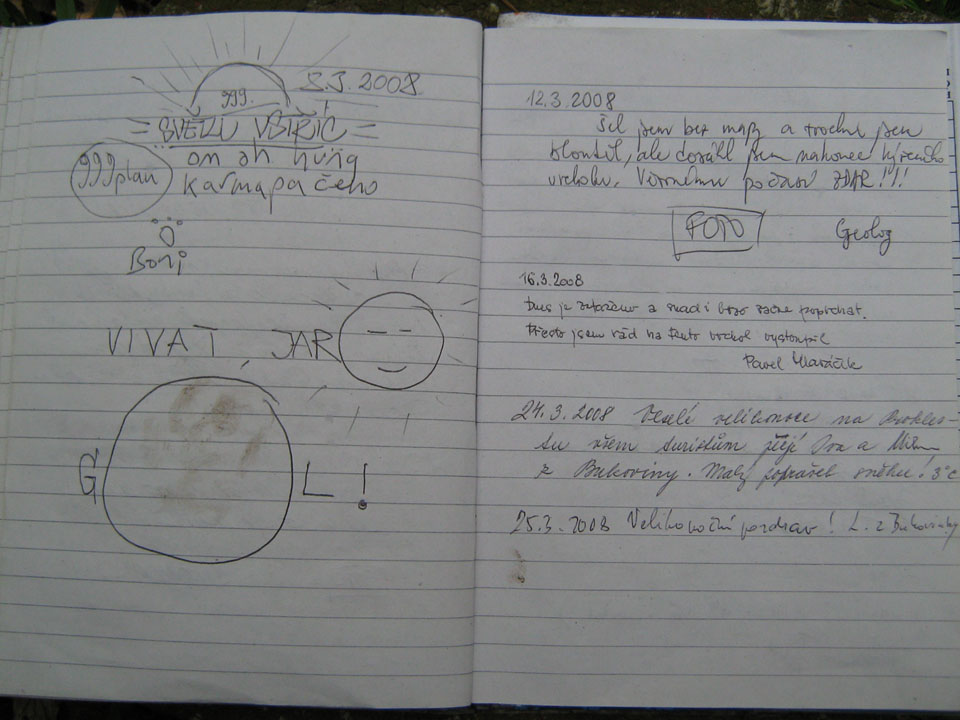 5.3.2008
999.
= SVĚTLU VSTŘÍC =
om ah hung
999 plan
karmapa čeho
Bori
VIVAT JARO
GÓL!
12.3.2008
Šel jsem bez mapy a trochu jsem
bloudil, ale dosáhl jsem nakonec kýženého
vrcholu. počasí ZDAR!!!
FOTO
Geolog
16.3.2008
Dnes je zataženo a snad i brzo začne poprchat.
Přesto jsem rád na tento vrchol vystoupil
Pavel
24.3.2008 Veselé velikonoce na
su všem turistům přejí a
z Bukoviny. Malý poprašek sněhu! 3°C
25.3.2008 Velikonoční pozdrav! L. z Bukovinky